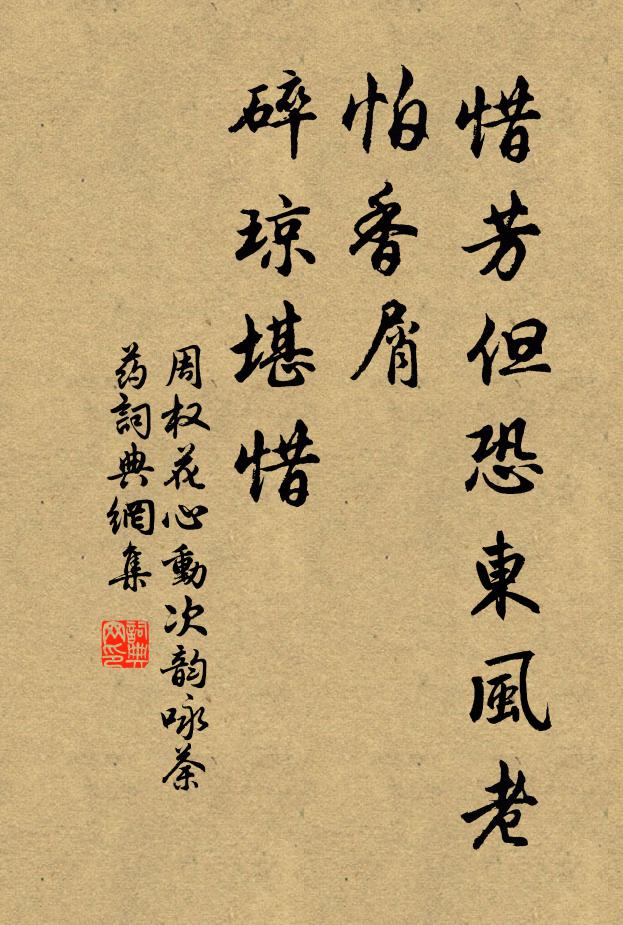 惜芳但恐東風老
怕香屑
碎琼堪惜
周权花心動次韵咏荼
药詞典網集
詞典
网印